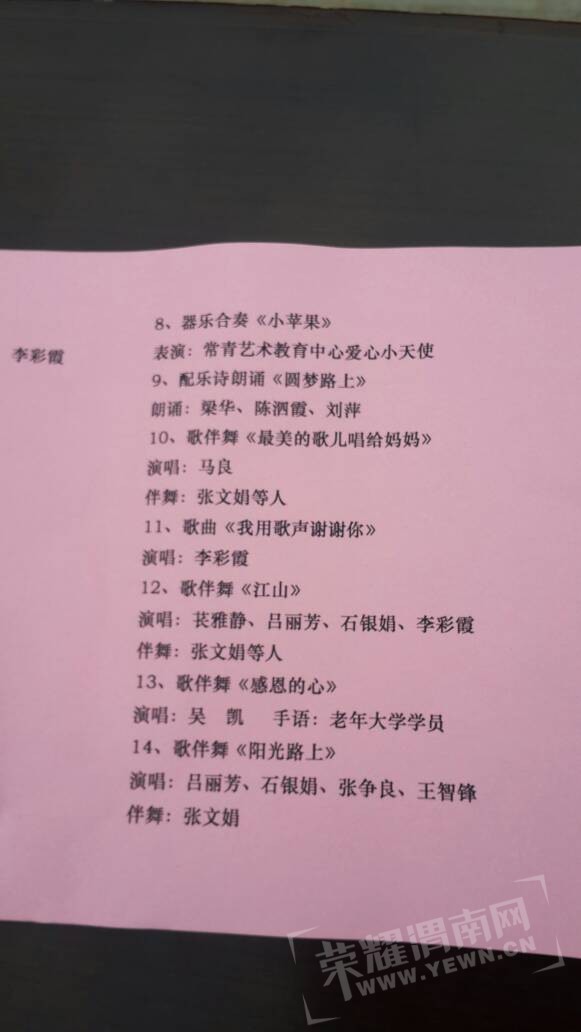 8、器乐合奏《小苹果》
李彩霞
表演：常青艺术教育中心爱心小天使
9、配乐诗朗诵《圆梦路上》
朗诵：梁华、陈泗霞、刘萍
10、歌伴舞《最美的歌儿唱给妈妈》
演唱：马良
伴舞：张文娟等人
11、歌曲《我用歌声谢谢你》
演唱：李彩霞
12、歌伴舞《江山》
演唱：苌雅静、吕丽芳、石银娟、李彩霞
伴舞：张文娟等人
13、歌伴舞《感恩的心》
演唱：吴 凯 手语：老年大学学员
14、歌伴舞《阳光路上》
演唱：吕丽芳、石银娟、张争良、王智锋
伴舞：张文娟
荣耀渭南网
WWW.YEWN.CN